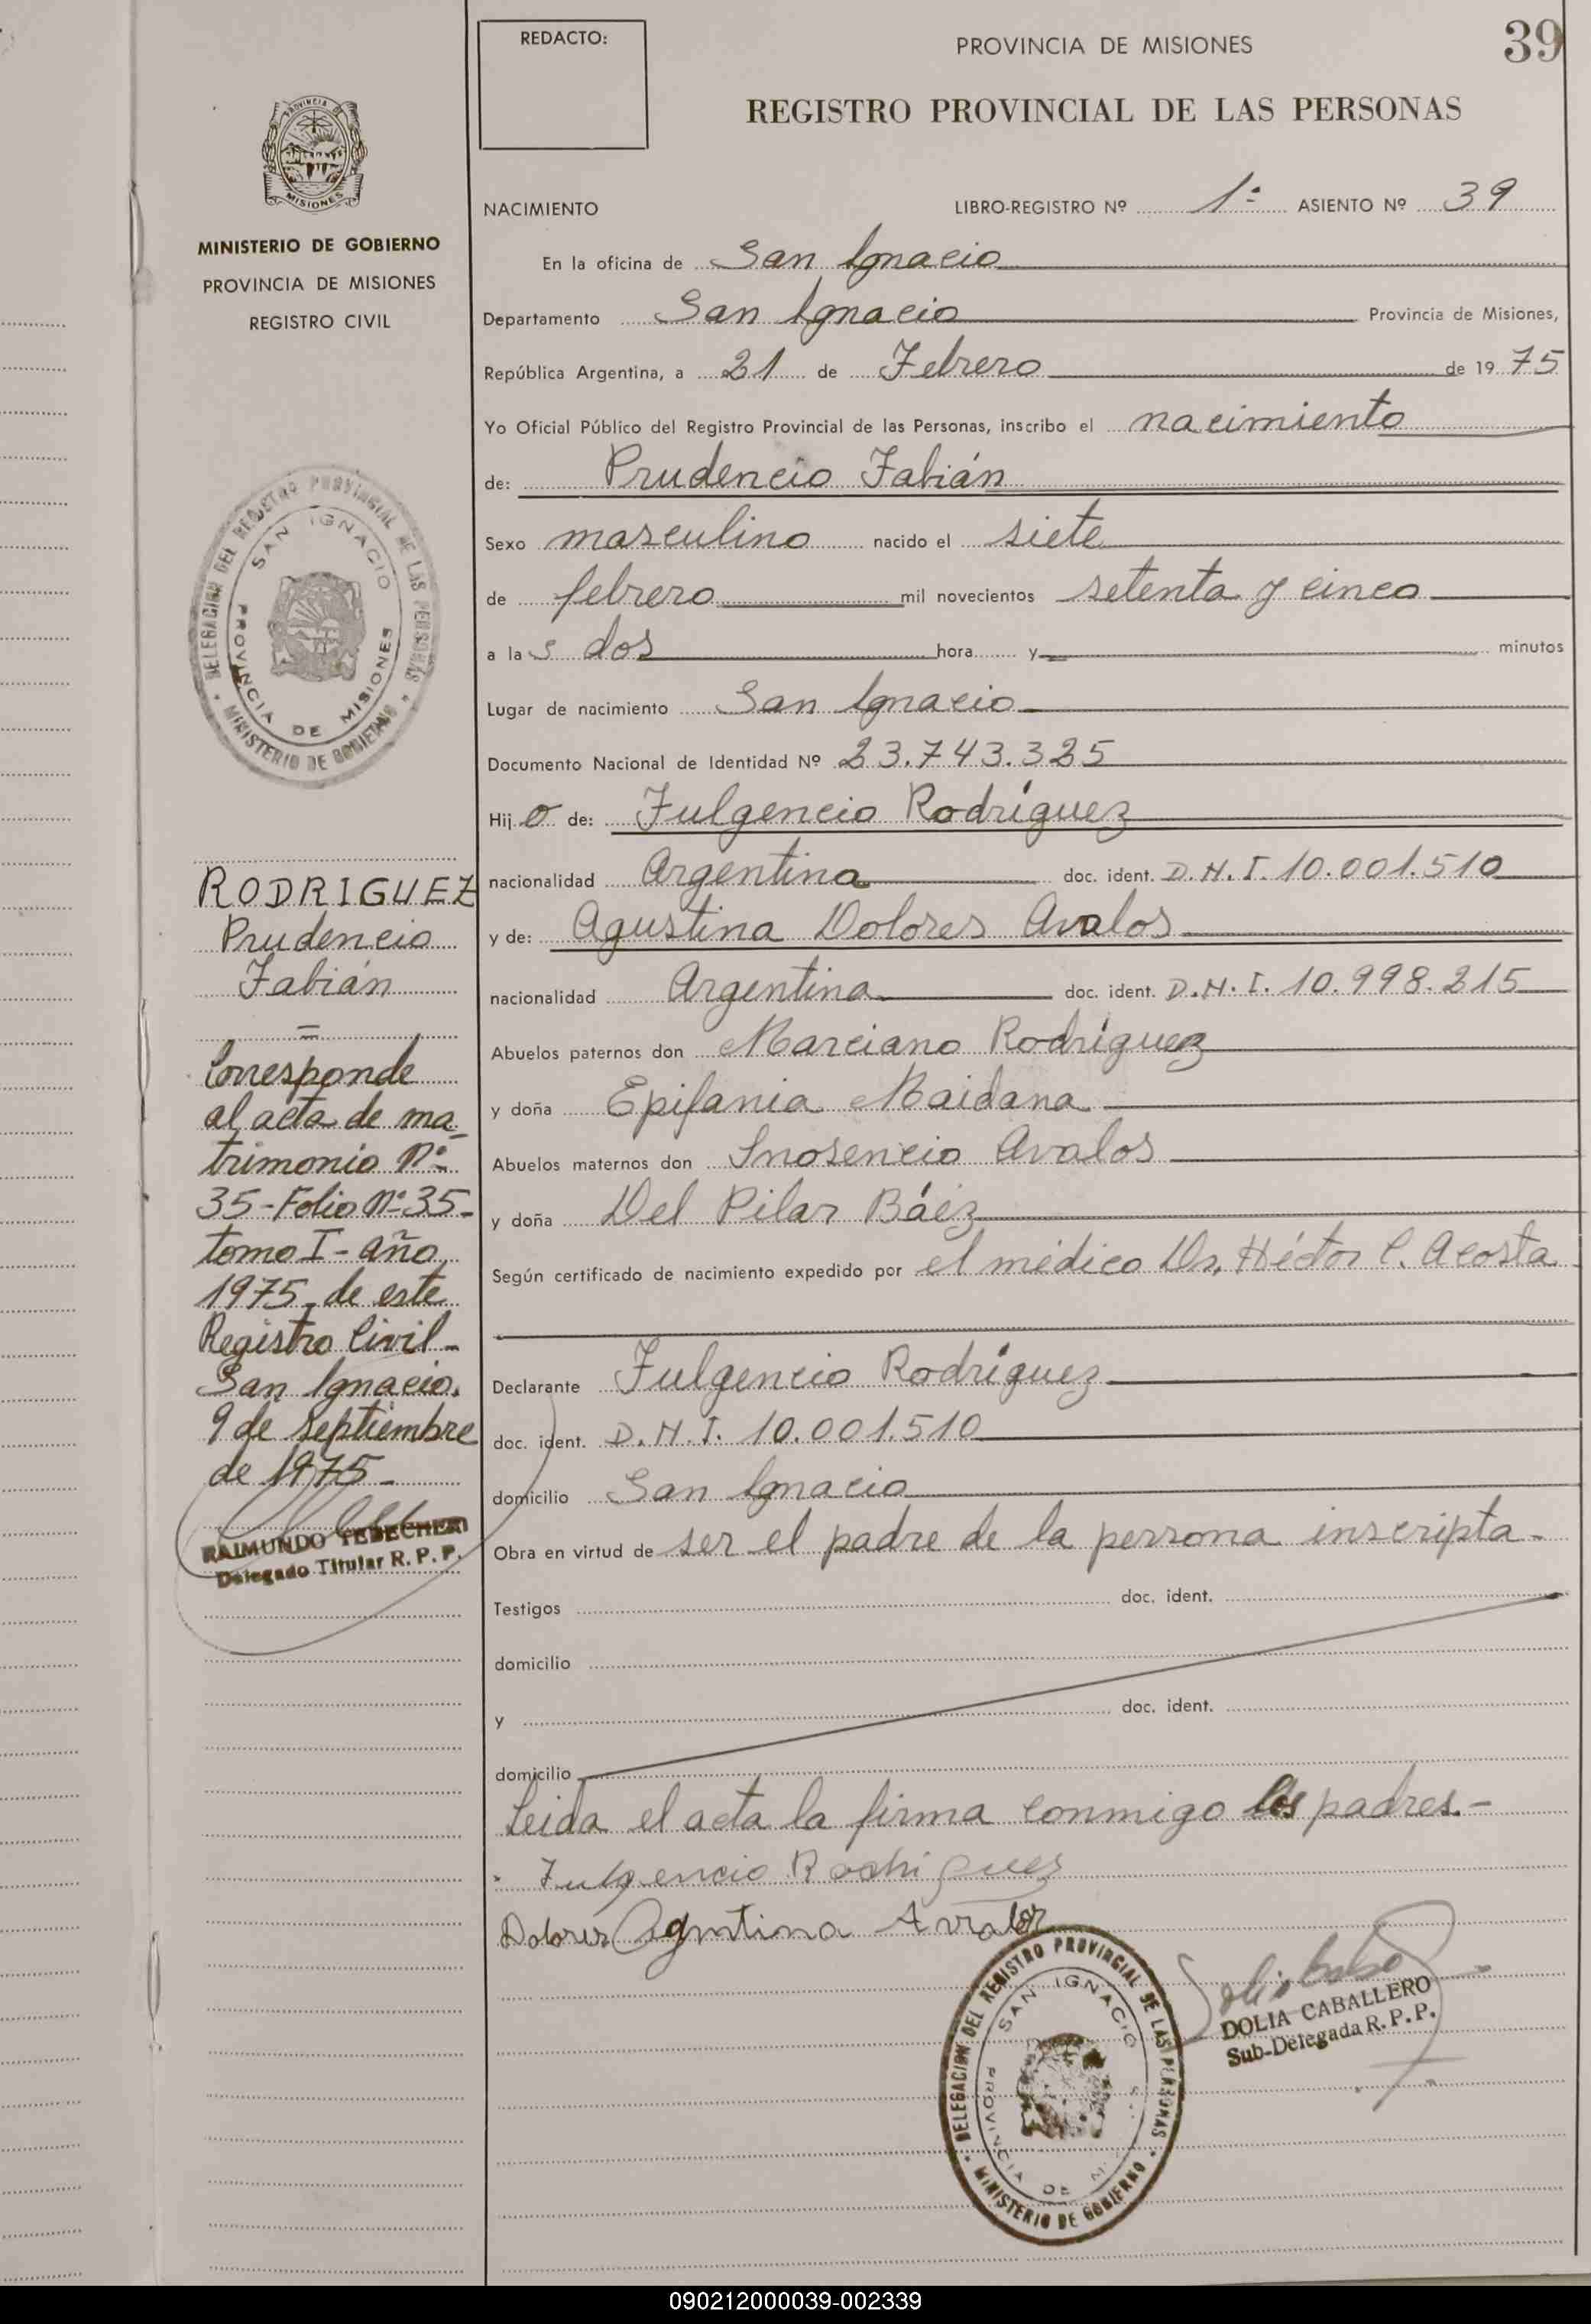 REDACTO:
PROVINCIA DE MISIONES
39
REGISTRO PROVINCIAL DE LAS PERSONAS
PROVINCIA DE
MISIONES
MINISTERIO DE GOBIERNO
PROVINCIA DE MISIONES
REGISTRO CIVIL
DELEGACION DEL REGISTRO PROVINCIAL DE LAS PERSONAS
SAN IGNACIO
PROVINCIA DE MISIONES
MINISTERIO DE GOBIERNO
RODRIGUEZ
Prudencio
Fabián
=
Corresponde
al acta de ma-
trimonio Nº
35-Folio Nº 35-
tomo I - año
1975 de este
Registro Civil -
San Ignacio.
9 de septiembre
de 1975 -
RAIMUNDO TEBECHERI
Delegado Titular R. P. P.
NACIMIENTO LIBRO-REGISTRO Nº 1º ASIENTO Nº 39
En la oficina de San Ignacio
Departamento San Ignacio Provincia de Misiones,
República Argentina, a 21 de Febrero de 19 75
Yo Oficial Público del Registro Provincial de las Personas, inscribo el nacimiento
de: Prudencio Fabián
Sexo masculino nacido el siete
de febrero mil novecientos setenta y cinco
a la s dos hora y minutos
Lugar de nacimiento San Ignacio
Documento Nacional de Identidad Nº 23.743.325
Hij o de: Fulgencio Rodríguez
nacionalidad Argentina doc. ident. D.N.I. 10.001.510
y de: Agustina Dolores Avalos
nacionalidad Argentina doc. ident. D.N.I. 10.998.215
Abuelos paternos don Marciano Rodríguez
y doña Epifania Maidana
Abuelos maternos don Inosencio Avalos
y doña Del Pilar Báez
Según certificado de nacimiento expedido por el médico Dr. Héctor C. Acosta
Declarante Fulgencio Rodríguez
doc. ident. D.N.I. 10.001.510
domicilio San Ignacio
Obra en virtud de ser el padre de la persona inscripta -
Testigos doc. ident.
domicilio
y doc. ident.
domicilio
Leida el acta la firma conmigo los padres.-
Fulgencio Rodriguez
Dolores Agustina Avalos
DELEGACION DEL REGISTRO PROVINCIAL DE LAS PERSONAS
SAN IGNACIO
PROVINCIA DE
MINISTERIO DE GOBIERNO
DOLIA CABALLERO
Sub-Delegada R. P. P.
090212000039-002339